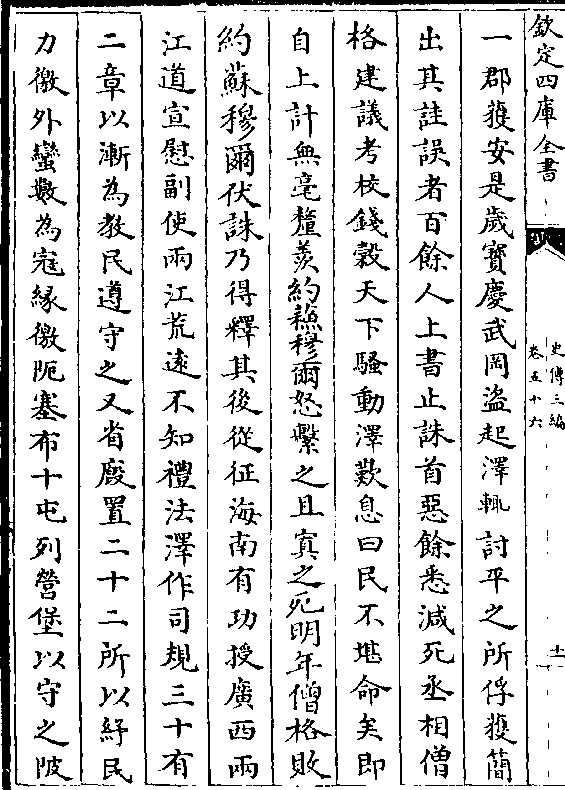 欽定四庫全書
史傳三編
卷五十六
十一
一郡獲安是歲寳慶武岡盗起澤輒討平之所俘獲簡
出其註誤者百餘人上書止誅首惡餘悉減死丞相僧
格建議考校錢穀天下騷動澤歎息曰民不堪命矣即
自上計無亳釐羨約蘇穆爾怒繫之且寘之死明年僧格敗
約蘇穆爾伏誅乃得釋其後從征海南有功授廣西兩
江道宣慰副使兩江荒逺不知禮法澤作司規三十有
二章以漸為教民遵守之又省廢置二十二所以紓民
力徼外蠻數為寇縁徼阨塞布十屯列營堡以守之陂